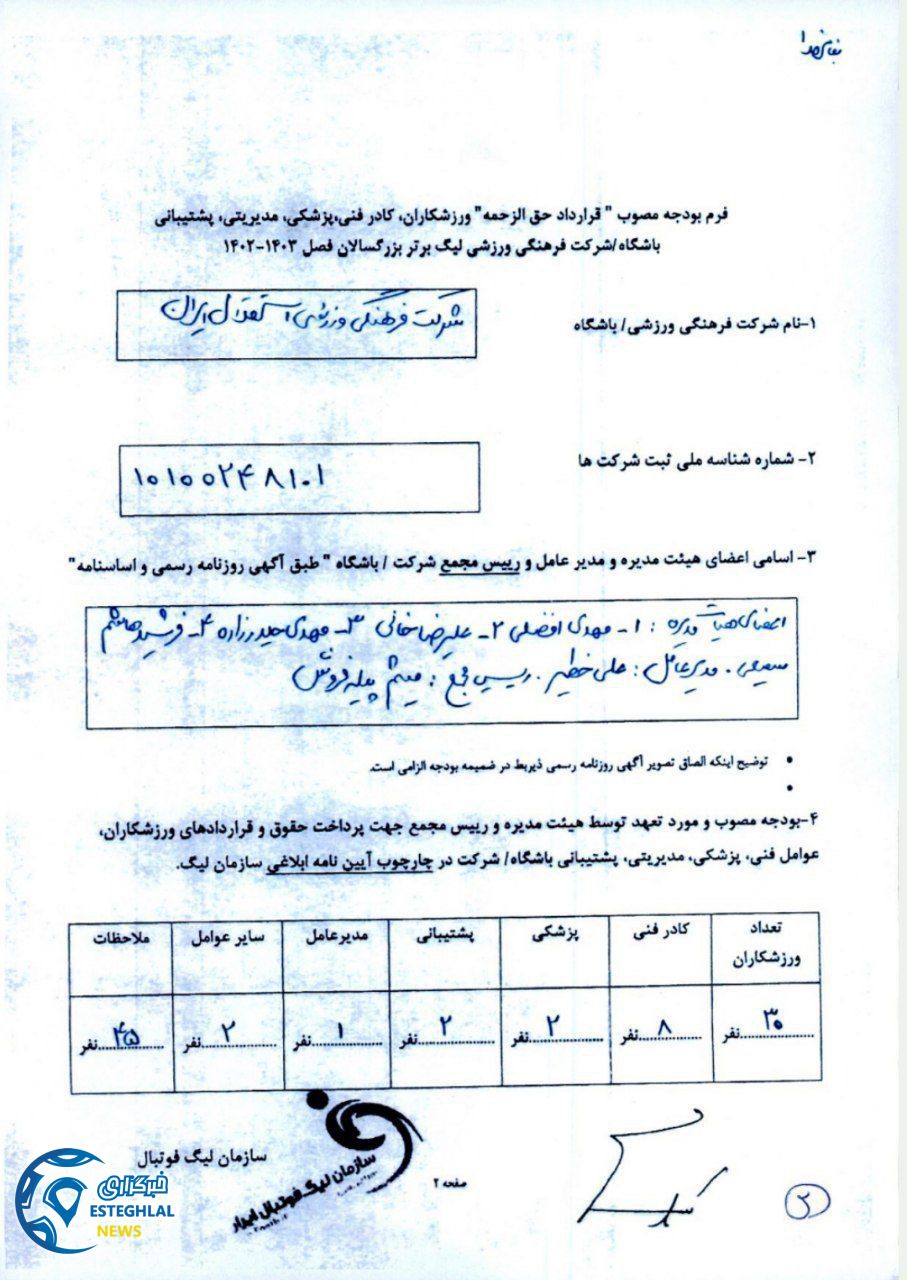 بنام خدا
فرم بودجه مصوب " قرارداد حق الزحمه" ورزشکاران، کادر فنی،پزشکی، مدیریتی، پشتیبانی
باشگاه/شرکت فرهنگی ورزشی لیگ برتر بزرگسالان فصل ۱۴۰۳-۱۴۰۲
۱-نام شرکت فرهنگی ورزشی/ باشگاه
شرکت فرهنگی ورزشی استقلال ایران
۲- شماره شناسه ملی ثبت شرکت ها
۱۰۱۰۰۲۴۸۱۰۱
۳- اسامی اعضای هیئت مدیره و مدیر عامل و رییس مجمع شرکت / باشگاه " طبق آگهی روزنامه رسمی و اساسنامه"
اعضای هیات مدیره : ۱- مهدی افضلی ۲- علیرضا خانی ۳- مهدی حیدرزاده ۴- فرشید
سمیعی . مدیرعامل : علی خطیر . رییس مجمع : میثم پیله فروش
توضیح اینکه الصاق تصویر آگهی روزنامه رسمی ذیربط در ضمیمه بودجه الزامی است.
۴-بودجه مصوب و مورد تعهد توسط هیئت مدیره و رییس مجمع جهت پرداخت حقوق و قراردادهای ورزشکاران،
عوامل فنی، پزشکی، مدیریتی، پشتیبانی باشگاه/ شرکت در چارچوب آیین نامه ابلاغی سازمان لیگ.
تعداد ورزشکاران کادر فنی پزشکی پشتیبانی مدیرعامل سایر عوامل ملاحظات
۳۰ نفر ۸ نفر ۲ نفر ۲ نفر ۱ نفر ۲ نفر ۴۵ نفر
سازمان لیگ فوتبال
سازمان لیگ فوتبال ایران
صفحه ۲
۲
خبرگزاری
ESTEGHLAL
NEWS